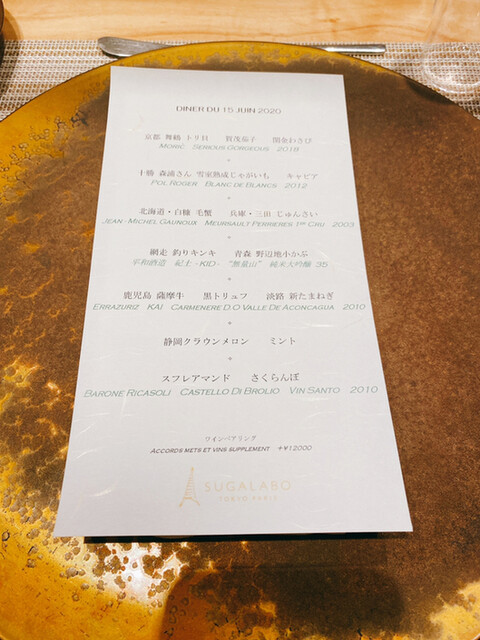 DINER DU 15 JUIN 2020
京都 舞鶴 トリ貝 賀茂茄子 関金わさび
MORIC SERIOUS GORGEOUS 2018
十勝 森浦さん 雪室熟成じゃがいも キャビア
POL ROGER BLANC DE BLANCS 2012
北海道・白糠 毛蟹 兵庫・三田 じゅんさい
JEAN-MICHEL GAUNOUX MEURSAULT PERRIERES 1ER CRU 2003
網走 釣りキンキ 青森 野辺地小かぶ
平和酒造 紀土 -KID- "無量山" 純米大吟醸 35
鹿児島 薩摩牛 黒トリュフ 淡路 新たまねぎ
ERRAZURIZ KAI CARMENERE D.O VALLE DE ACONCAGUA 2010
静岡クラウンメロン ミント
スフレアマンド さくらんぼ
BARONE RICASOLI CASTELLO DI BROLIO VIN SANTO 2010
ワインペアリング
ACCORDS METS ET VINS SUPPLEMENT +¥12000
SUGALABO
TOKYO PARIS